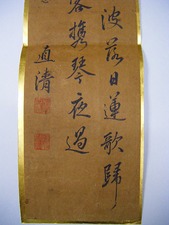 波落日蓮歌歸
客携琴夜過
直清